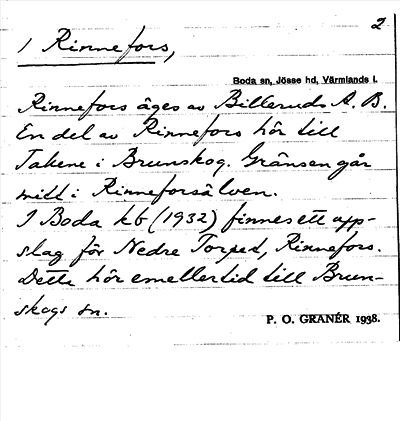 2
1 Rinnefors,
Boda sn, Jösse hd, Värmlands l.
Rinnefors äges av Billeruds A. B.
En del av Rinnefors hör till
Takene i Brunskog. Gränsen går
mitt i Rinneforsälven.
I Boda kb (1932) finnes ett upp-
slag för Nedre Torped, Rinnefors.
Detta hör emellertid till Brun-
skogs sn.
P. O. GRANÉR 1938.